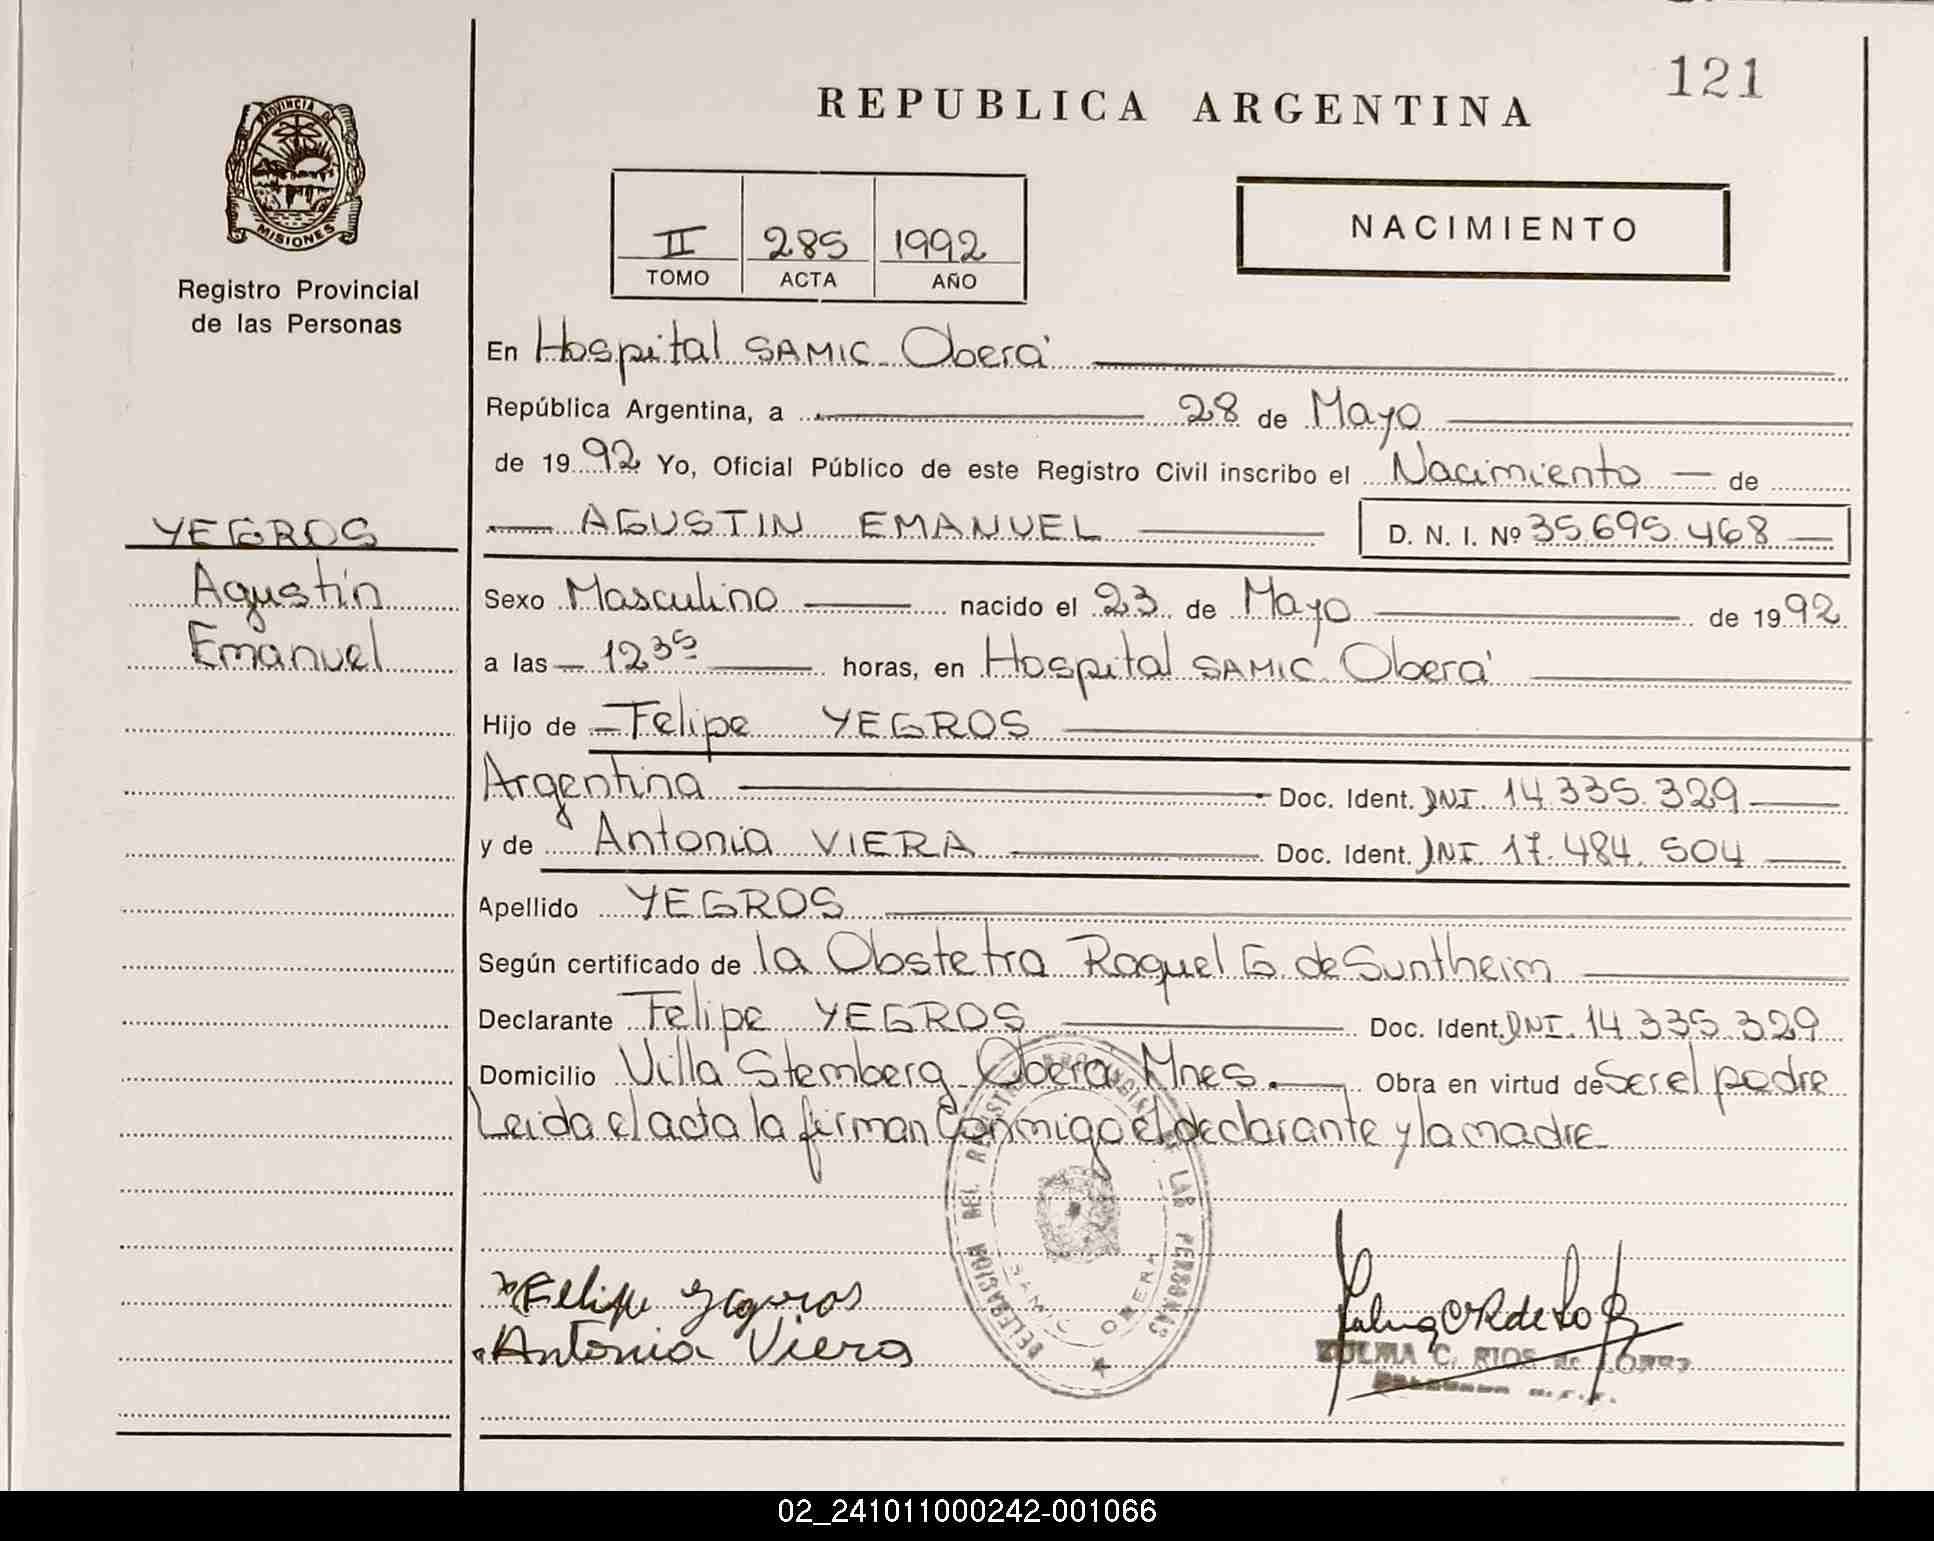 121
REPUBLICA ARGENTINA
PROVINCIA DE
MISIONES
Registro Provincial
de las Personas
II 285 1992
TOMO ACTA AÑO
NACIMIENTO
En Hospital SAMIC Oberá
República Argentina, a 28 de Mayo
de 1992 Yo, Oficial Público de este Registro Civil inscribo el Nacimiento de
AGUSTIN EMANUEL D. N. I. Nº 35.695.468
YEGROS
Agustín
Emanuel
Sexo Masculino nacido el 23 de Mayo de 1992
a las 12 35 horas, en Hospital SAMIC Oberá
Hijo de Felipe YEGROS
Argentina Doc. Ident. DNI 14.335.329
y de Antonia VIERA Doc. Ident. DNI 17.484.504
Apellido YEGROS
Según certificado de la Obstetra Raquel G. de Suntheim
Declarante Felipe YEGROS Doc. Ident. DNI. 14.335.329
Domicilio Villa Stemberg Oberá Mnes. Obra en virtud de Ser el padre
Leida el acta la firman Conmigo el declarante y la madre
DELEGACION DEL REGISTRO PROVINCIAL DE LAS PERSONAS
SAMIC OBERA
Felipe Yegros
Antonia Viera
ZULMA C. RIOS de
02_241011000242-001066